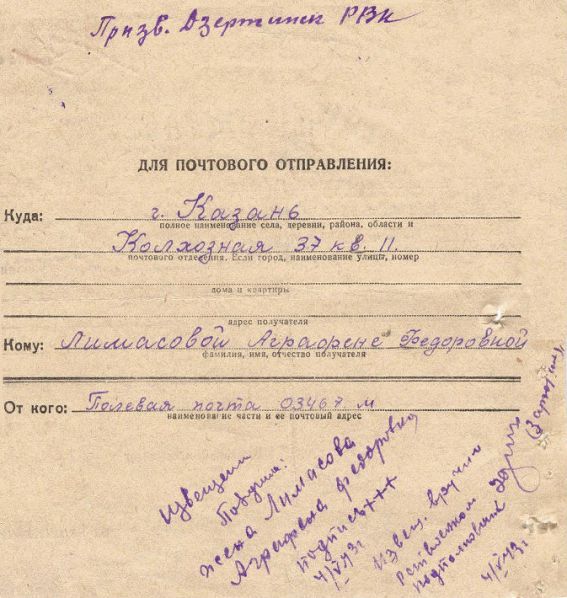 Призв. Дзержинск РВК
ДЛЯ ПОЧТОВОГО ОТПРАВЛЕНИЯ:
Куда: г. Казань
полное наименование села, деревни, района, области и
Колхозная 37 кв. 11.
почтового отделения. Если город, наименование улицы, номер
дома и квартиры
адрес получателя
Кому: Лимасовой Аграфене Федоровной
фамилия, имя, отчество получателя
От кого: Полевая почта 03467 м
наименование части и ее почтовый адрес
Извещение
Получил:
жена Лимасова
Аграфена Федоровна
подпись +++
4/V 43г
Извещ. вручил
подполковник
4/V 43г